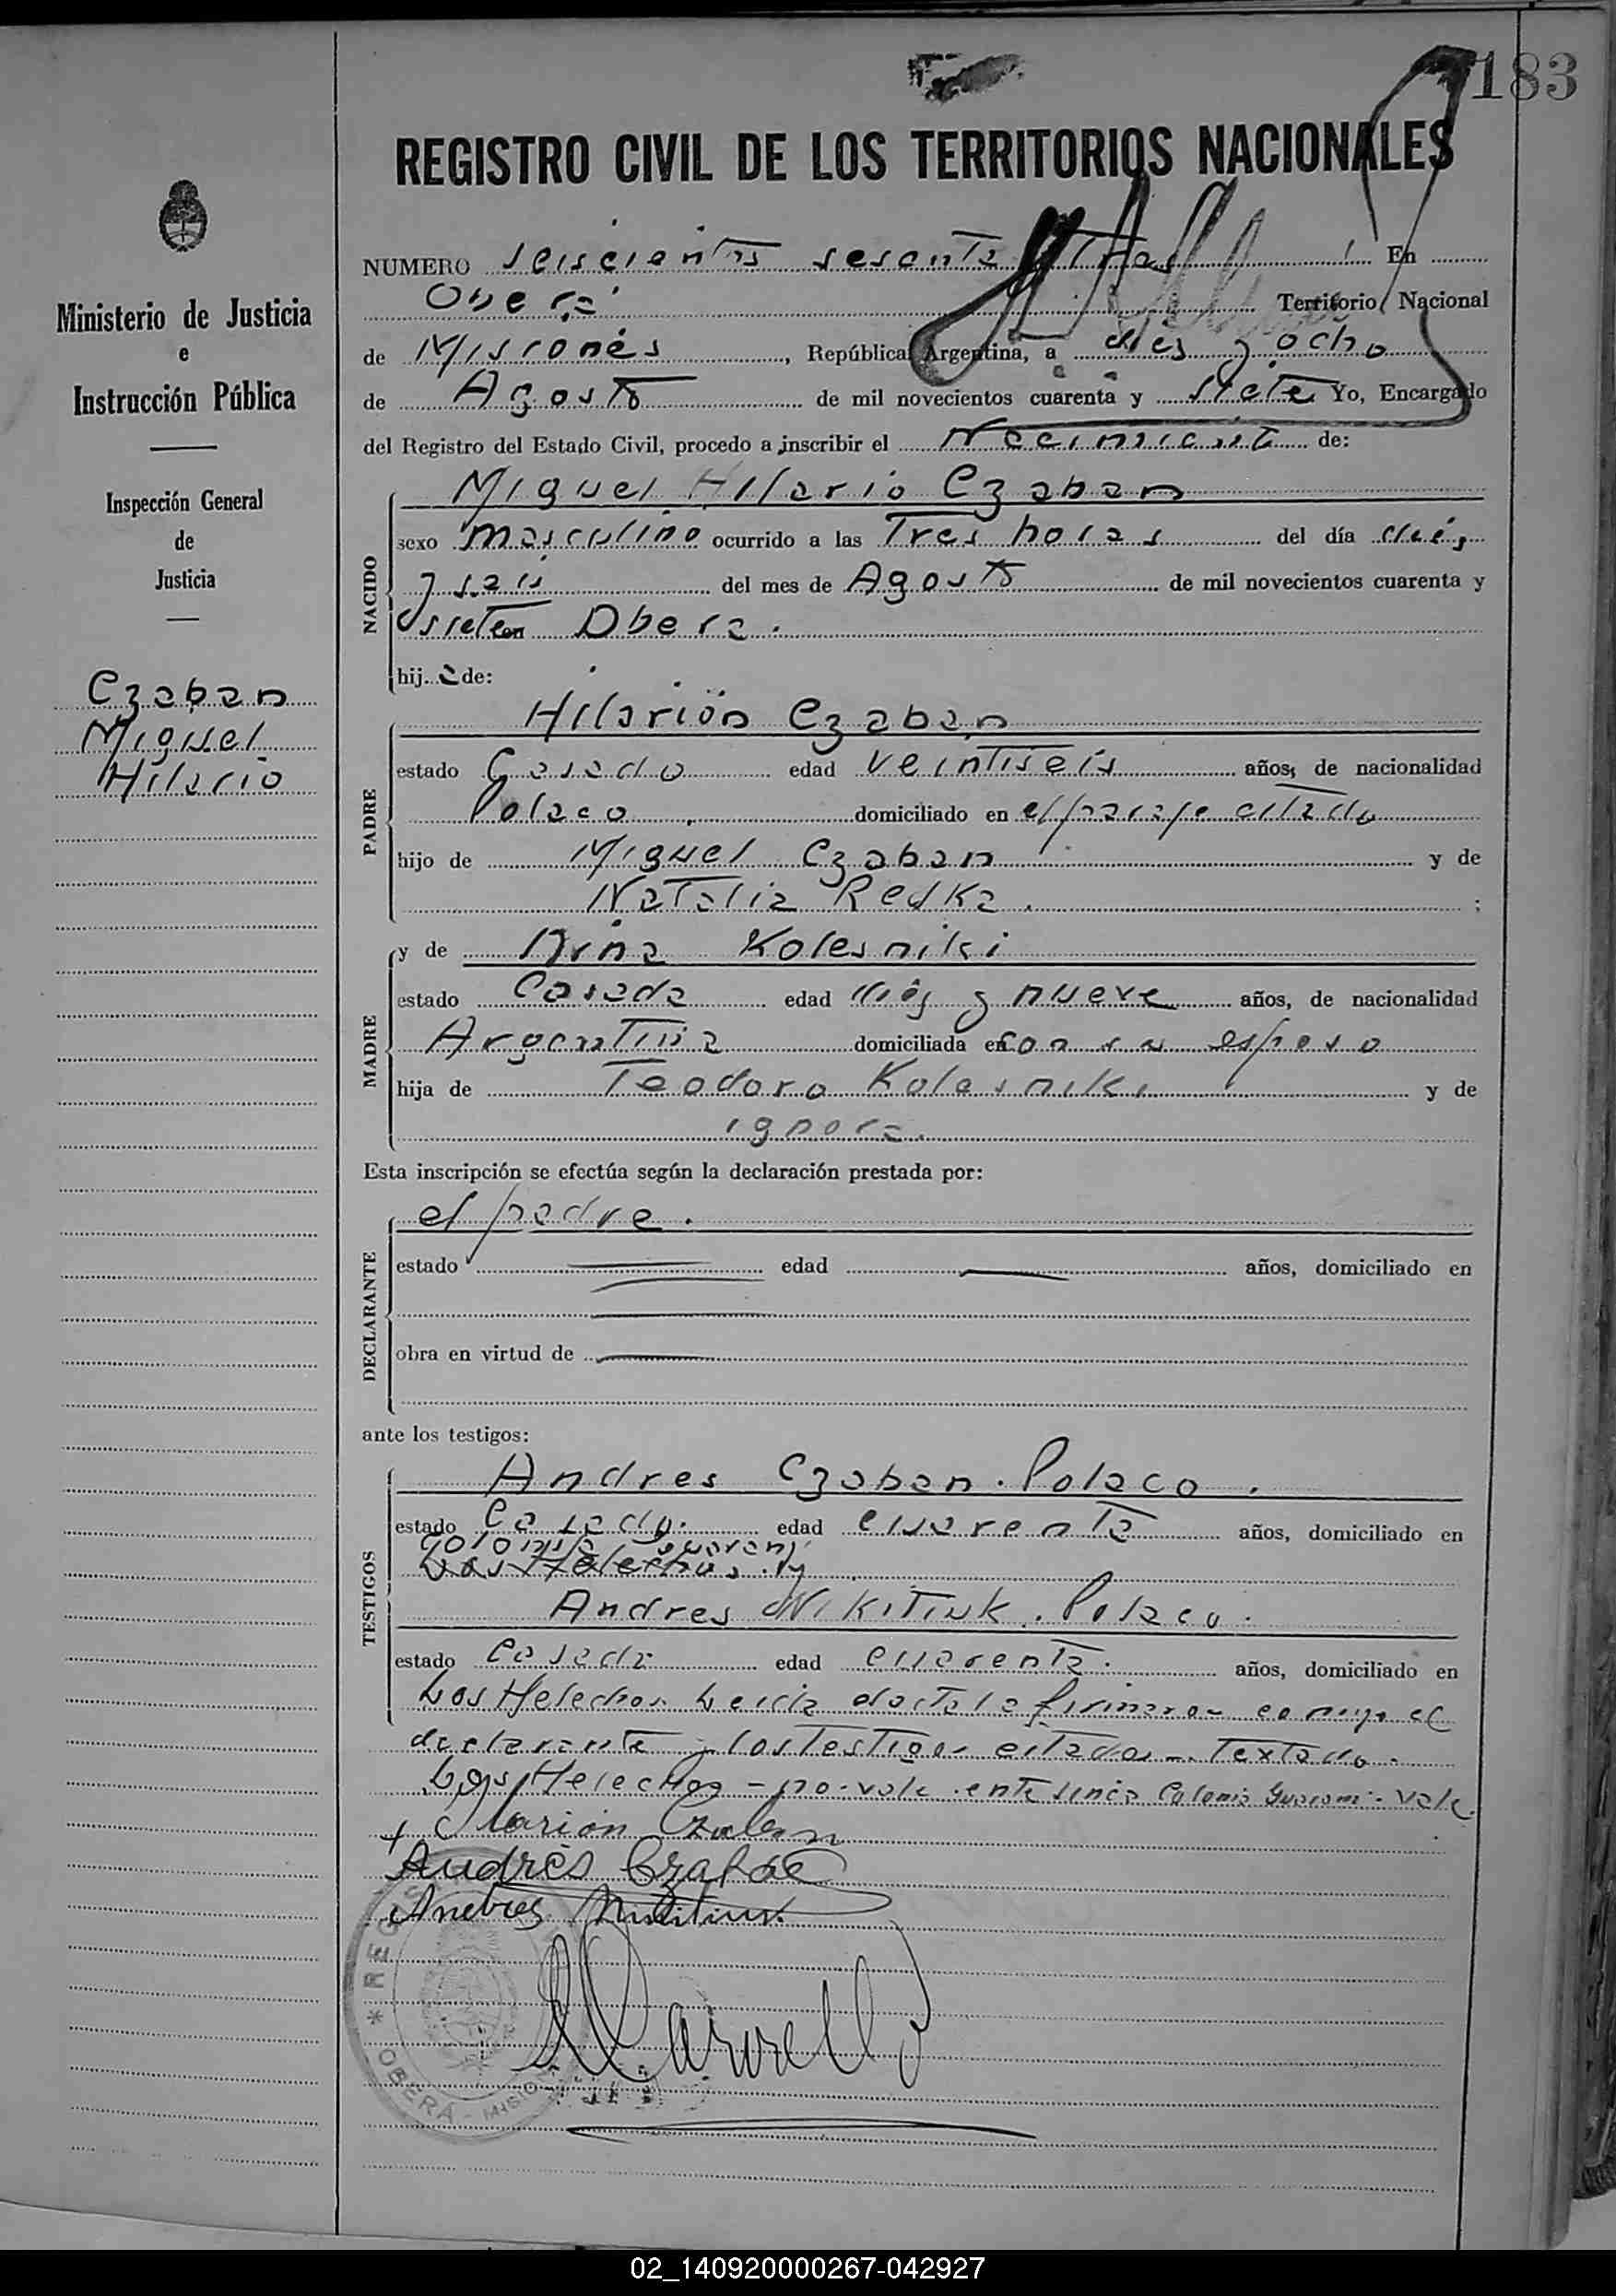 183
REGISTRO CIVIL DE LOS TERRITORIOS NACIONALES
NUMERO seiscientos sesenta y tres En
Oberá Territorio Nacional
de Misiones, República Argentina, a diés y ocho
de Agosto de mil novecientos cuarenta y siete Yo, Encargado
del Registro del Estado Civil, procedo a inscribir el Nacimiento de:
Ministerio de Justicia
e
Instrucción Pública
Inspección General
de
Justicia
Czaban
Miguel
Hilario
NACIDO
Miguel Hilario Czaban
sexo masculino ocurrido a las Tres horas del día diés
y seis del mes de Agosto de mil novecientos cuarenta y
siete en Obera.
hijo de:
PADRE
Hilarión Czaban
estado Casado edad veintiseis años, de nacionalidad
Polaco domiciliado en el paraje citado
hijo de Miguel Czaban y de
Natalia Redka. ;
MADRE
y de Nina Kolesniki
estado Casada edad diés y nueve años, de nacionalidad
Argentina domiciliada en con su esposo
hija de Teodoro Kolesniki y de
ignora.
Esta inscripción se efectúa según la declaración prestada por:
DECLARANTE
el padre.
estado edad años, domiciliado en
obra en virtud de
ante los testigos:
TESTIGOS
Andres Czaban. Polaco.
estado Casado. edad cuarenta años, domiciliado en
Colonia Guarani
Los Helechos. y
Andres Nikitiuk. Polaco.
estado Casado edad cuarenta. años, domiciliado en
Los Helechos. Leida el acta la firmaron conmigo el
declarante y los testigos citados. Textado.
Los Helechos - no vale. entre linea Colonia Guarani. Vale.
+ Ilarion Czaban
Andrés Czaban
Andres Nikitiuk.
* REG
OBERÁ - MISIO
02_140920000267-042927